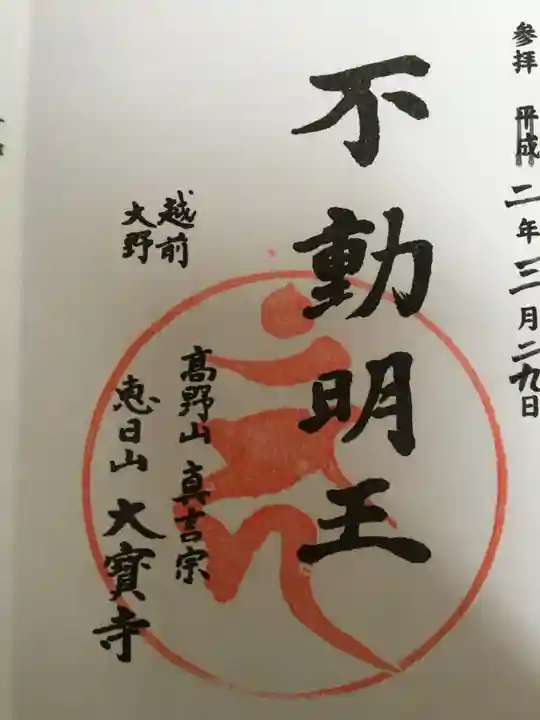 参拝 平成二年三月二九日
不動明王
越前
大野
高野山 真言宗
恵日山 大寳寺